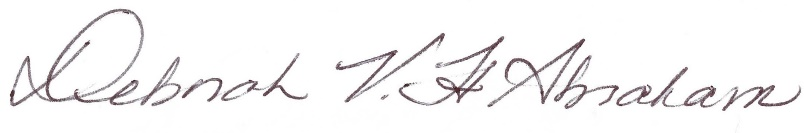 Deborah V. H. Abraham